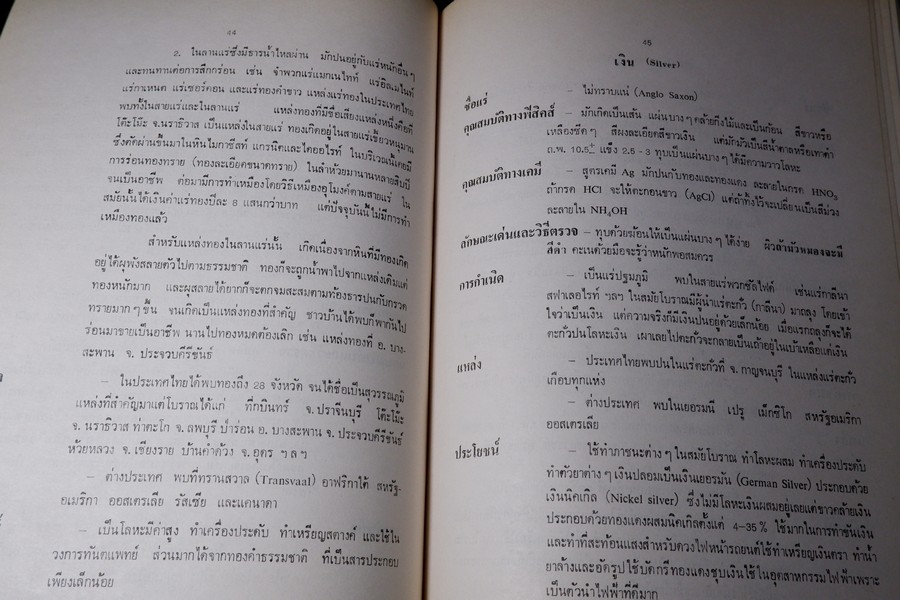 ๔๔
๒. ในลานแร่ซึ่งมีธารน้ำไหลผ่าน มักปนอยู่กับแร่หนักอื่นๆ
และทนทานต่อการสึกกร่อน เช่น จำพวกแร่แมกเนไทท์ แร่อิลเมไนท์
แร่การ์เนต แร่เซอร์คอน และแร่ทองคำขาว แหล่งแร่ทองในประเทศไทย
พบทั้งในสายแร่และในลานแร่ แหล่งทองที่มีชื่อเสียงแหล่งหนึ่งคือที่
โต๊ะโม๊ะ จ.นราธิวาส เป็นแหล่งในสายแร่ ทองเกิดอยู่ในสายแร่เขี้ยวหนุมาน
ซึ่งตัดผ่านขึ้นมาในหินไมกาชีสท์ แกรนิตและไดออไรท์ ในบริเวณนี้เคยมี
การร่อนทองทราย (ทองละเอียดขนาดทราย) ในลำห้วยมานานหลายสิบปี
จนเป็นอาชีพ ต่อมามีการทำเหมืองโดยวิธีเหมืองอุโมงค์ตามสายแร่ ใน
สมัยนั้นได้เงินค่าแร่ทองปีละ 8 แสนกว่าบาท แต่ปัจจุบันนี้ไม่มีการทำ
เหมืองทองแล้ว
สำหรับแหล่งทองในลานแร่นั้น เกิดเนื่องจากหินที่มีทองเกิด
อยู่ได้ผุพังสลายตัวไปตามธรรมชาติ ทองก็จะถูกน้ำพาไปจากแหล่งเดิมแต่
ทองหนักมาก และผุสลายได้ยากก็จะตกจมสะสมตามท้องธารปนกับกรวด
ทรายมากๆ ขึ้น จนเกิดเป็นแหล่งทองที่สำคัญ ชาวบ้านได้พบก็พากันไป
ร่อนมาขายเป็นอาชีพ นานไปทองหมดต้องเลิก เช่น แหล่งทองที่ อ. บาง-
สะพาน จ. ประจวบคีรีขันธ์
– ในประเทศไทยได้พบทองถึง 28 จังหวัด จนได้ชื่อเป็นสุวรรณภูมิ
แหล่งที่สำคัญมาแต่โบราณได้แก่ ที่กบินทร์ จ. ปราจีนบุรี โต๊ะโม๊ะ
จ. นราธิวาส ท่าตะโก จ. ลพบุรี ป่าร่อน อ. บางสะพาน จ. ประจวบคีรีขันธ์
ห้วยหลวง จ. เชียงราย บ้านคำด้วง จ. อุดร ฯลฯ
– ต่างประเทศ พบที่ทรานสวาล (Transvaal) อาฟริกาใต้ สหรัฐ-
อเมริกา ออสเตรเลีย รัสเซีย และแคนาดา
– เป็นโลหะมีค่าสูง ทำเครื่องประดับ ทำเหรียญสตางค์ และใช้ใน
วงการทันตแพทย์ ส่วนมากได้จากทองคำธรรมชาติ ที่เป็นสารประกอบ
เพียงเล็กน้อย
45
เงิน (Silver)
ชื่อแร่ – ไม่ทราบแน่ (Anglo Saxon)
คุณสมบัติทางฟิสิคส์ – มักเกิดเป็นเส้น แผ่นบางๆ คล้ายกิ่งไม้และเป็นก้อน สีขาวหรือ
เหลืองซีดๆ สีผงละเอียดสีขาวเงิน แต่มักมัวเป็นสีน้ำตาลหรือเทาดำ
ถ.พ. 10.5± แข็ง 2.5 - 3 ทุบเป็นแผ่นบางๆ ได้มีความวาวโลหะ
คุณสมบัติทางเคมี – สูตรเคมี Ag มักปนกับทองและทองแดง ละลายในกรด HNO3
ถ้ากรด HCl จะให้ตะกอนขาว (AgCl) แต่ถ้าทิ้งไว้จะเปลี่ยนเป็นสีม่วง
ละลายใน NH4OH
ลักษณะเด่นและวิธีตรวจ – ทุบด้วยฆ้อนให้เป็นแผ่นบางๆ ได้ง่าย ผิวถ้ามัวหมองจะมี
สีดำ คะเนด้วยมือจะรู้ว่าหนักพอสมควร
การกำเนิด – เป็นแร่ปฐมภูมิ พบในสายแร่พวกซัลไฟด์ เช่นแร่กาลีนา
สฟาเลอไรท์ ฯลฯ ในสมัยโบราณมีผู้นำแร่ตะกั่ว (กาลีนา) มาถลุง โดยเข้า
ใจว่าเป็นเงิน แต่ความจริงก็มีเงินปนอยู่ด้วยเล็กน้อย เมื่อแรกถลุงก็จะได้
ตะกั่วปนโลหะเงิน เผาเลยไปตะกั่วจะกลายเป็นเถ้าอยู่ในเบ้าเหลือแต่เงิน
แหล่ง – ประเทศไทยพบปนในแร่ตะกั่วที่ จ. กาญจนบุรี ในแหล่งแร่ตะกั่ว
เกือบทุกแห่ง
– ต่างประเทศ พบในเยอรมนี เปรู เม็กซิโก สหรัฐอเมริกา
ออสเตรเลีย
ประโยชน์ – ใช้ทำภาชนะต่างๆ ในสมัยโบราณ ทำโลหะผสม ทำเครื่องประดับ
ทำตัวยาต่างๆ เงินปลอมเป็นเงินเยอรมัน (German Silver) ประกอบด้วย
เงินนิคเกิล (Nickel silver) ซึ่งไม่มีโลหะเงินผสมอยู่เลยแต่ขาวคล้ายเงิน
ประกอบด้วยทองแดงผสมนิคเกิลตั้งแต่ 4–35% ใช้มากในการทำขันเงิน
และทำที่สะท้อนแสงสำหรับดวงไฟหน้ารถยนต์ใช้ทำเหรียญเงินตรา ทำน้ำ
ยาล้างและอัดรูปใช้บัดกรีทองแดงชุบเงินใช้ในอุตสาหกรรมไฟฟ้าเพราะ
เป็นตัวนำไฟฟ้าที่ดีมาก